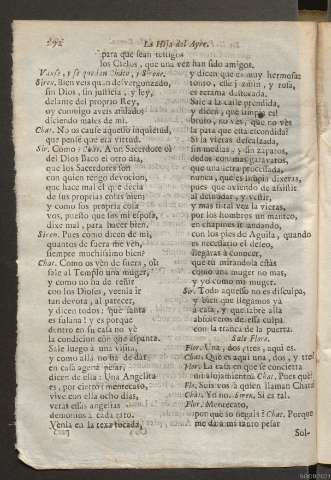 292
La Hija del Ayre.
para que sean testigos
los Cielos, que una vez han sido amigos.
Vanse, y se quedan Chato, y Sirene.
Siren. Bien veis quan desvergonzado,
sin Dios, sin justicia, y ley,
delante del proprio Rey,
oy conmigo aveis andado
diciendo males de mi.
Chat. No os cause aquesso inquietud,
que pensè que era virtud.
Sir. Como? Chat. A un Sacerdote oì
del Dios Baco el otro dia,
que los Sacerdotes son
con quien tengo devocion,
que hace mal el que decia
de sus proprias cosas bien;
y como sos propria cosa
vos, puesto que sos mi esposa,
dixe mal, para hacer bien.
Siren. Pues como dicen de mi,
quantos de fuera me vèn,
siempre muchissimo bien?
Chat. Como os vèn de fuera, oìd:
sale al Templo una muger,
y como no ha de reñir
con los Dioses, venla ir
tan devota, al parecer,
y dicen todos: Que santa
es fulana! y es porque
dentro en su casa no vè
la condicion con que espanta.
Sale luego à una visita,
y como allà no ha de dar
en casa agena pesar,
dicen de ella: Una Angelita
es, por cierto: mentecato,
vive con ella ocho dias,
veràs essas angelias
demonios à cada rato.
Venla en la rexa tocada,
y dicen que es muy hermosa:
tonto, que jazmin, y rosa
es retama destocada.
Sale à la calle prendida,
y dicen, què limpia es!
bruto, no ves, que no vès
la pata que està escondida?
Si la vieras descalzada,
sin medias, y sin zapatos,
dedos con mas garavatos,
que una letra processada,
nunca, què es limpia dixeras,
pues que oviendo de assistir
al desnudar, y vestir,
y mas si tal vez la vieras,
por los hombros un manteo,
en chapines ir andando,
con los pies de Aguila, quando
es necessario el desseo,
llegàras à conocer,
que es mirandola estàs
como una muger no mas,
y yo como mi muger.
Sir. Todo aquesso no es disculpa,
y bien que llegamos yà
à casa, y que sabre allà
absolveros de essa culpa
con la tranca de la puerta.
Sale Flora.
Flor. Una, dos, tres, aqui es.
Chat. Què es aqui una, dos, y tres?
Flor. La casa en que se concierta
mi alojamiento. Chat. Pues què?
Flo. Sois vos à quien llaman Chato?
Chat. Yo no. Siren. Si es tal.
Flor. Mentecato,
por què lo negais? Chat. Porque
me darà mi tanto pesar
Sol-